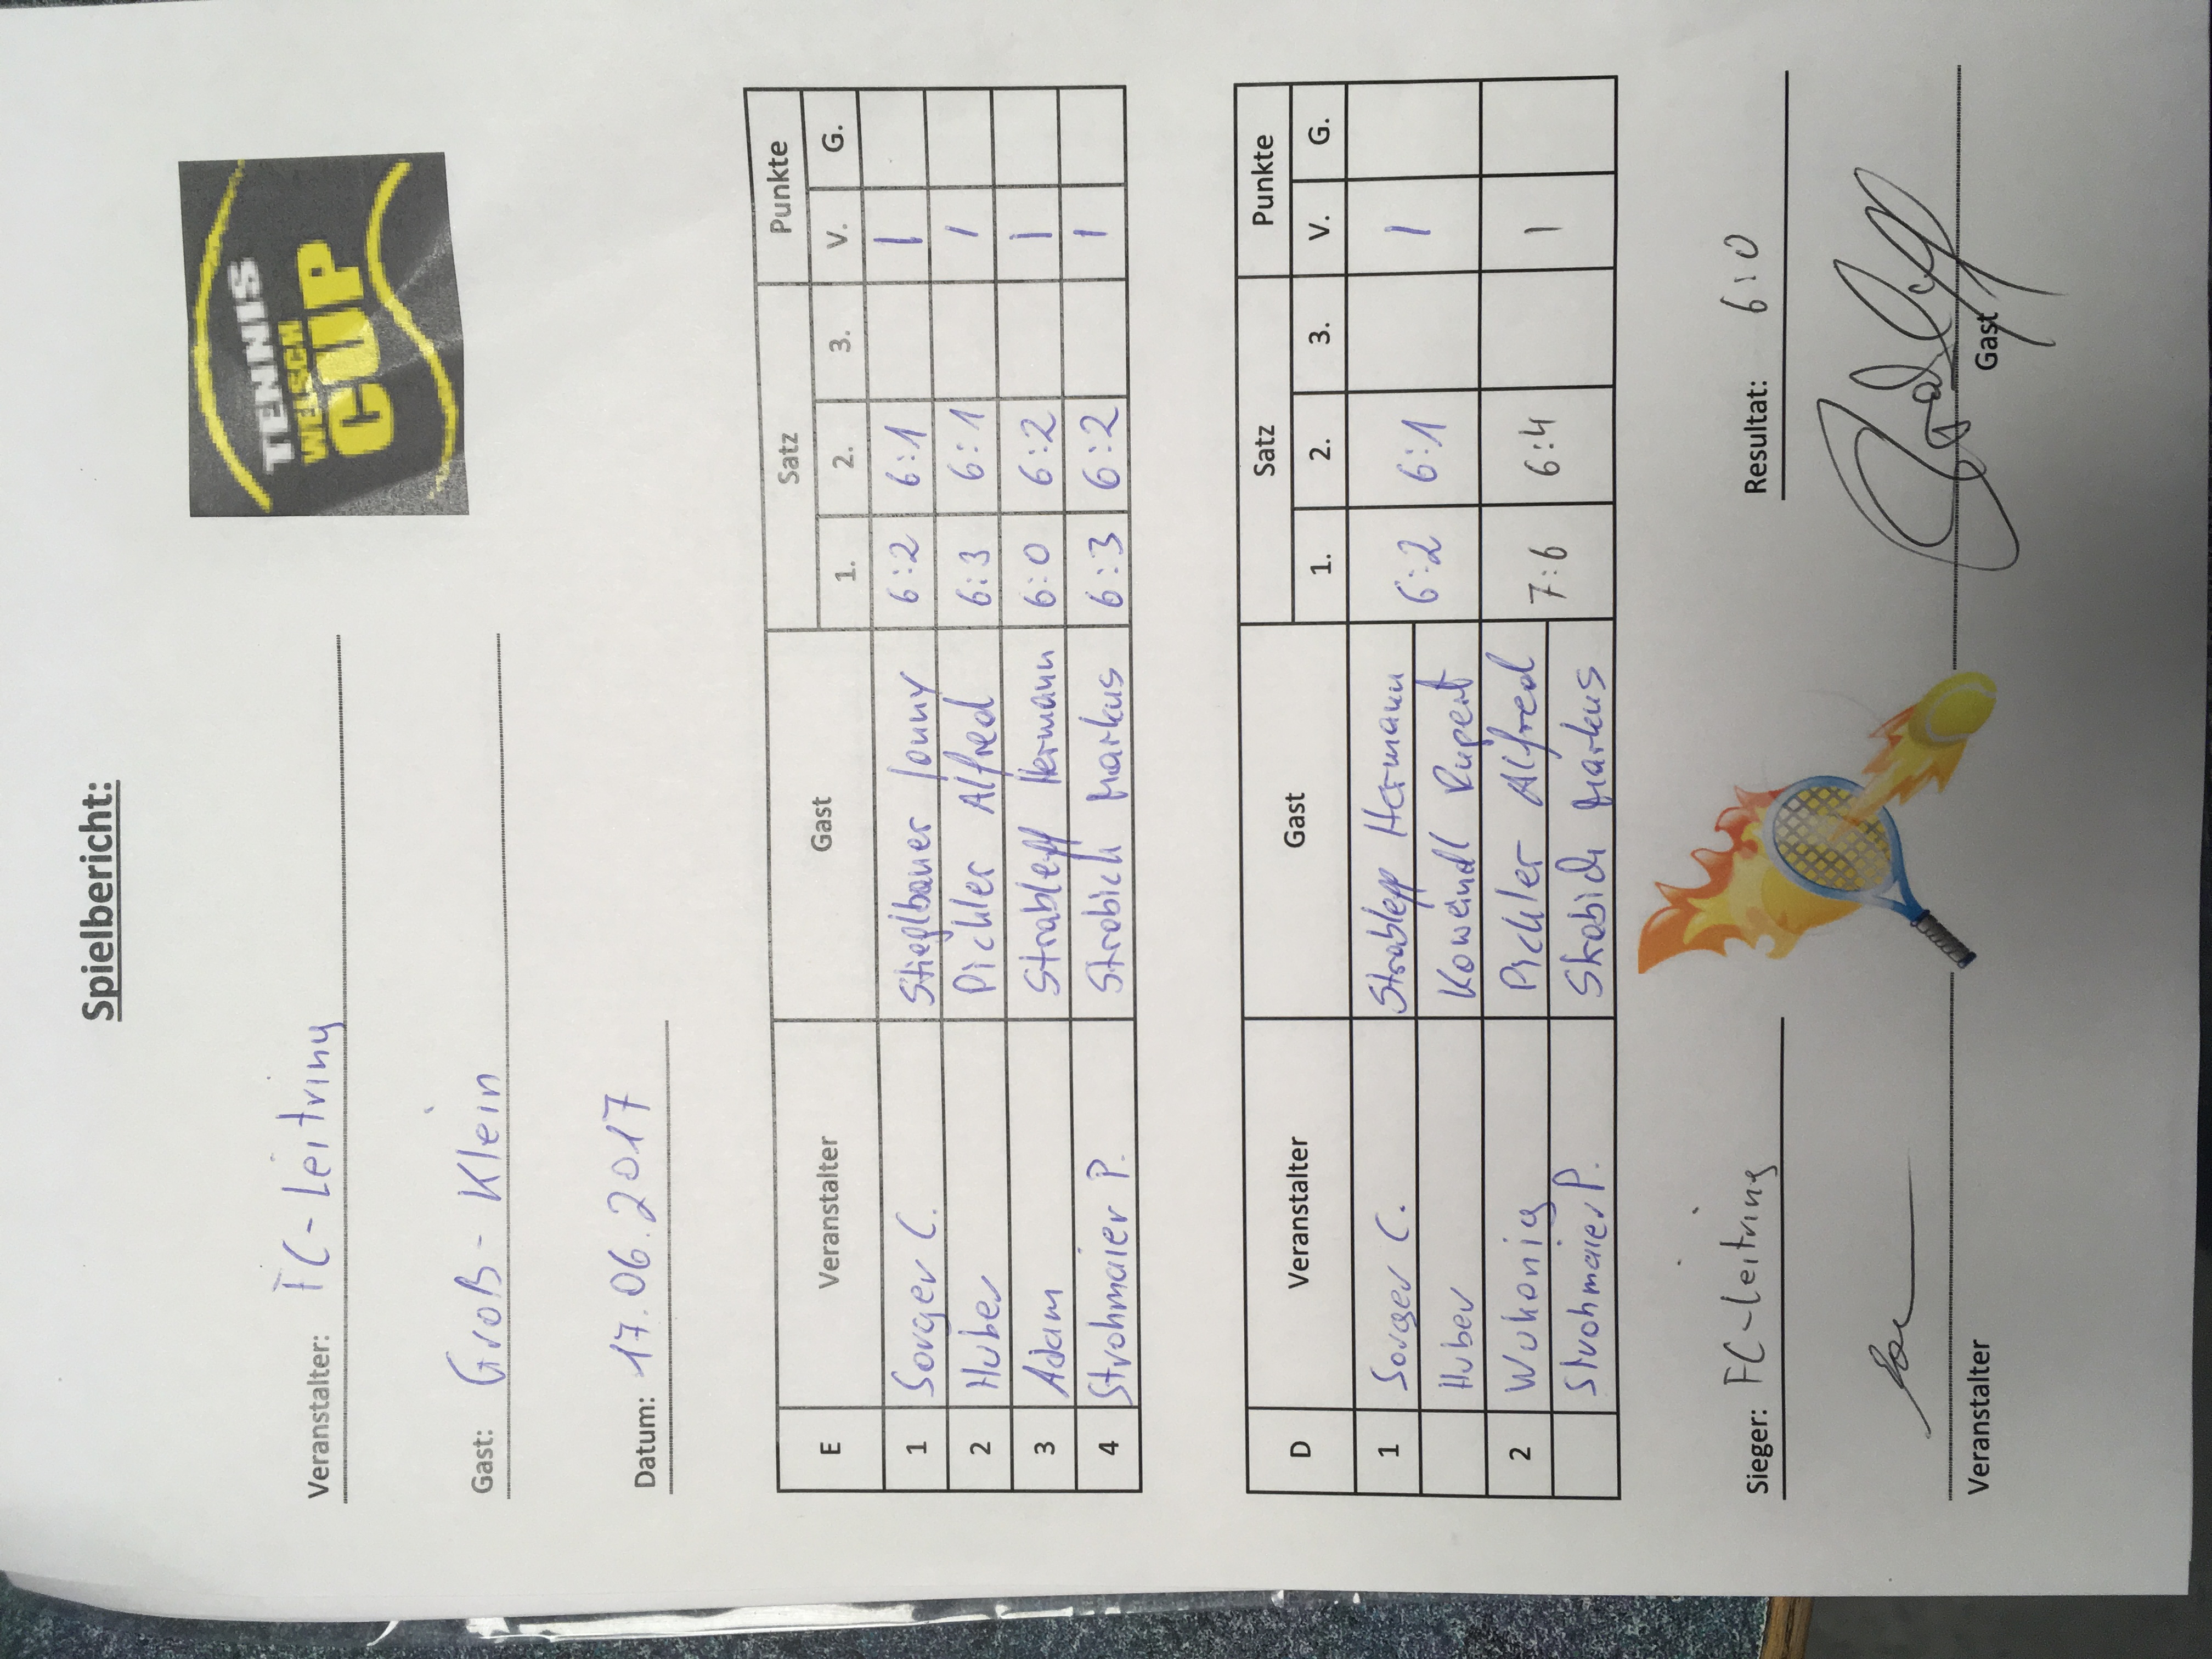 Spielbericht:
TENNIS
WELSCH
CUP
Veranstalter: FC-Leitring
Gast: Groß-Klein
Datum: 17.06.2017
E Veranstalter Gast Satz Punkte
1. 2. 3. V. G.
1 Sorger C. Stieglbauer Jonny 6:2 6:1 1
2 Huber Pichler Alfred 6:3 6:1 1
3 Adam Strablepp Hermann 6:0 6:2 1
4 Strohmaier P. Strabich Markus 6:3 6:2 1
D Veranstalter Gast Satz Punkte
1. 2. 3. V. G.
1 Sorger C. Strablepp Hermann 6:2 6:1 1
Huber Koweindl Rupert
2 Wukonig Pichler Alfred 7:6 6:4 1
Strohmaier P. Skabich Markus
Sieger: FC-Leitring Resultat: 6:0
Veranstalter Gast